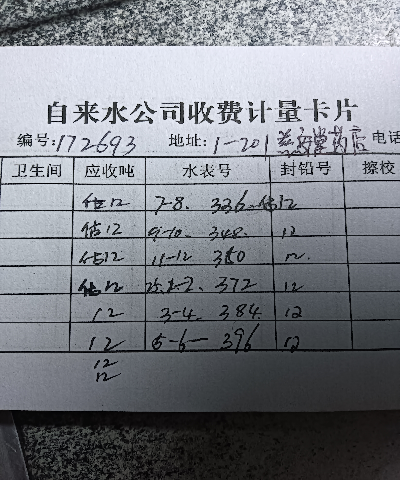 自来水公司收费计量卡片
编号:172693 地址:1-201 药店 电话
卫生间 应收吨 水表号 封铅号 擦校
估12 7-8. 336. 估12
估12 9-10. 348. 12
估12 11-12 360 12.
估12 25.1-2. 372 12
12 3-4. 384. 12
12 5-6- 396 12
12
12